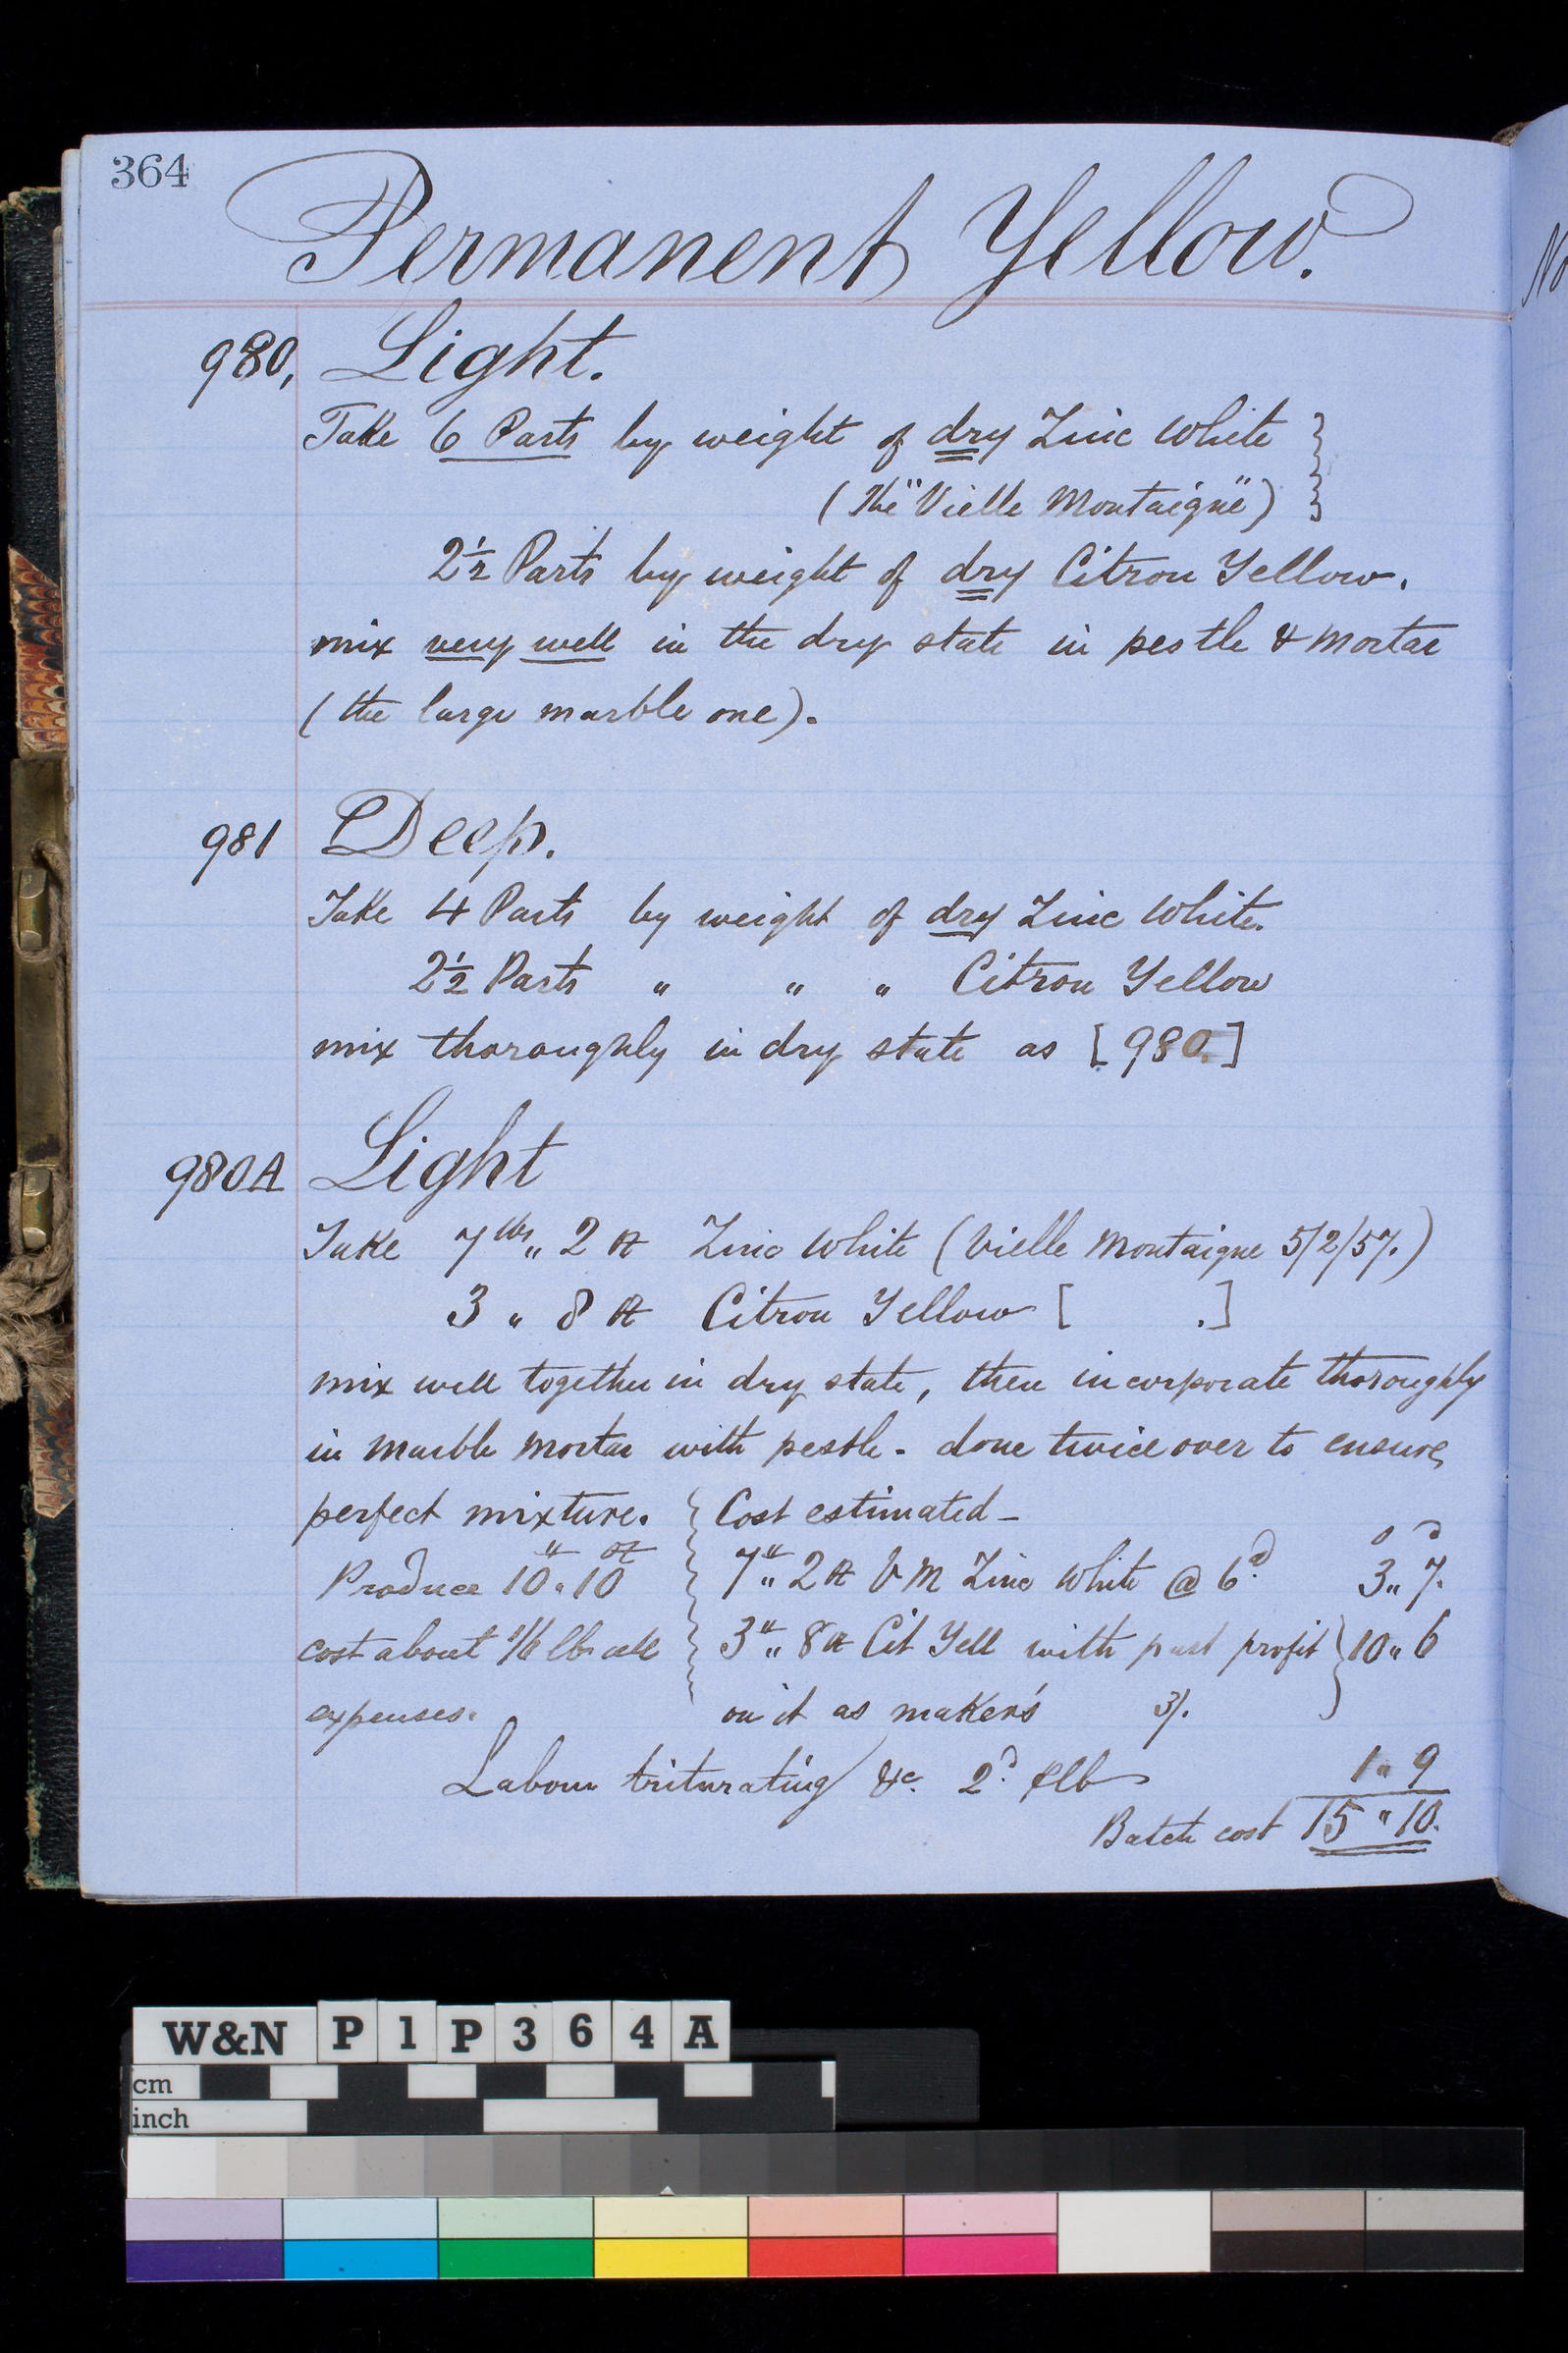 364
Permanent Yellow.
980, Light.
Take 6 Parts by weight of dry Zinc White
(The "Vielle Montaigne")
2½ Parts by weight of dry Citron Yellow.
mix very well in the dry state in pestle & mortar
(the large marble one).
981 Deep.
Take 4 Parts by weight of dry Zinc White.
2½ Parts " " " Citron Yellow
mix thoroughly in dry state as [980.]
980A Light
Take 7 lbs " 2 oz Zinc White (Vielle Montaigne 5/2/57.)
3 " 8 oz Citron Yellow [ .]
mix well together in dry state, then incorporate thoroughly
in marble mortar with pestle - done twice over to ensure
perfect mixture. Cost estimated -
Produce 10 " 10 oz 7 " 2 oz V M Zinc White @ 6d 3 " 7.
cost about 1/6 lb all 3 " 8 oz Cit Yell with profit 10 " 6
expenses. on it as makers 3/.
Labour triturating &c. 2d lb 1 " 9
Batch cost 15 " 10.
No
W&N P1P364A
cm
inch